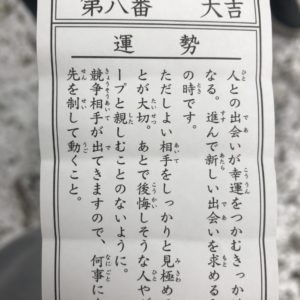 第八番 大吉
運勢
人との出会いが幸運をつかむきっか
なる。進んで新しい出会いを求める
の時です。
ただしよい相手をしっかりと見極め
とが大切。あとで後悔しそうな人や
ープと親しむことのないように。
競争相手が出てきますので、何事に
先を制して動くこと。